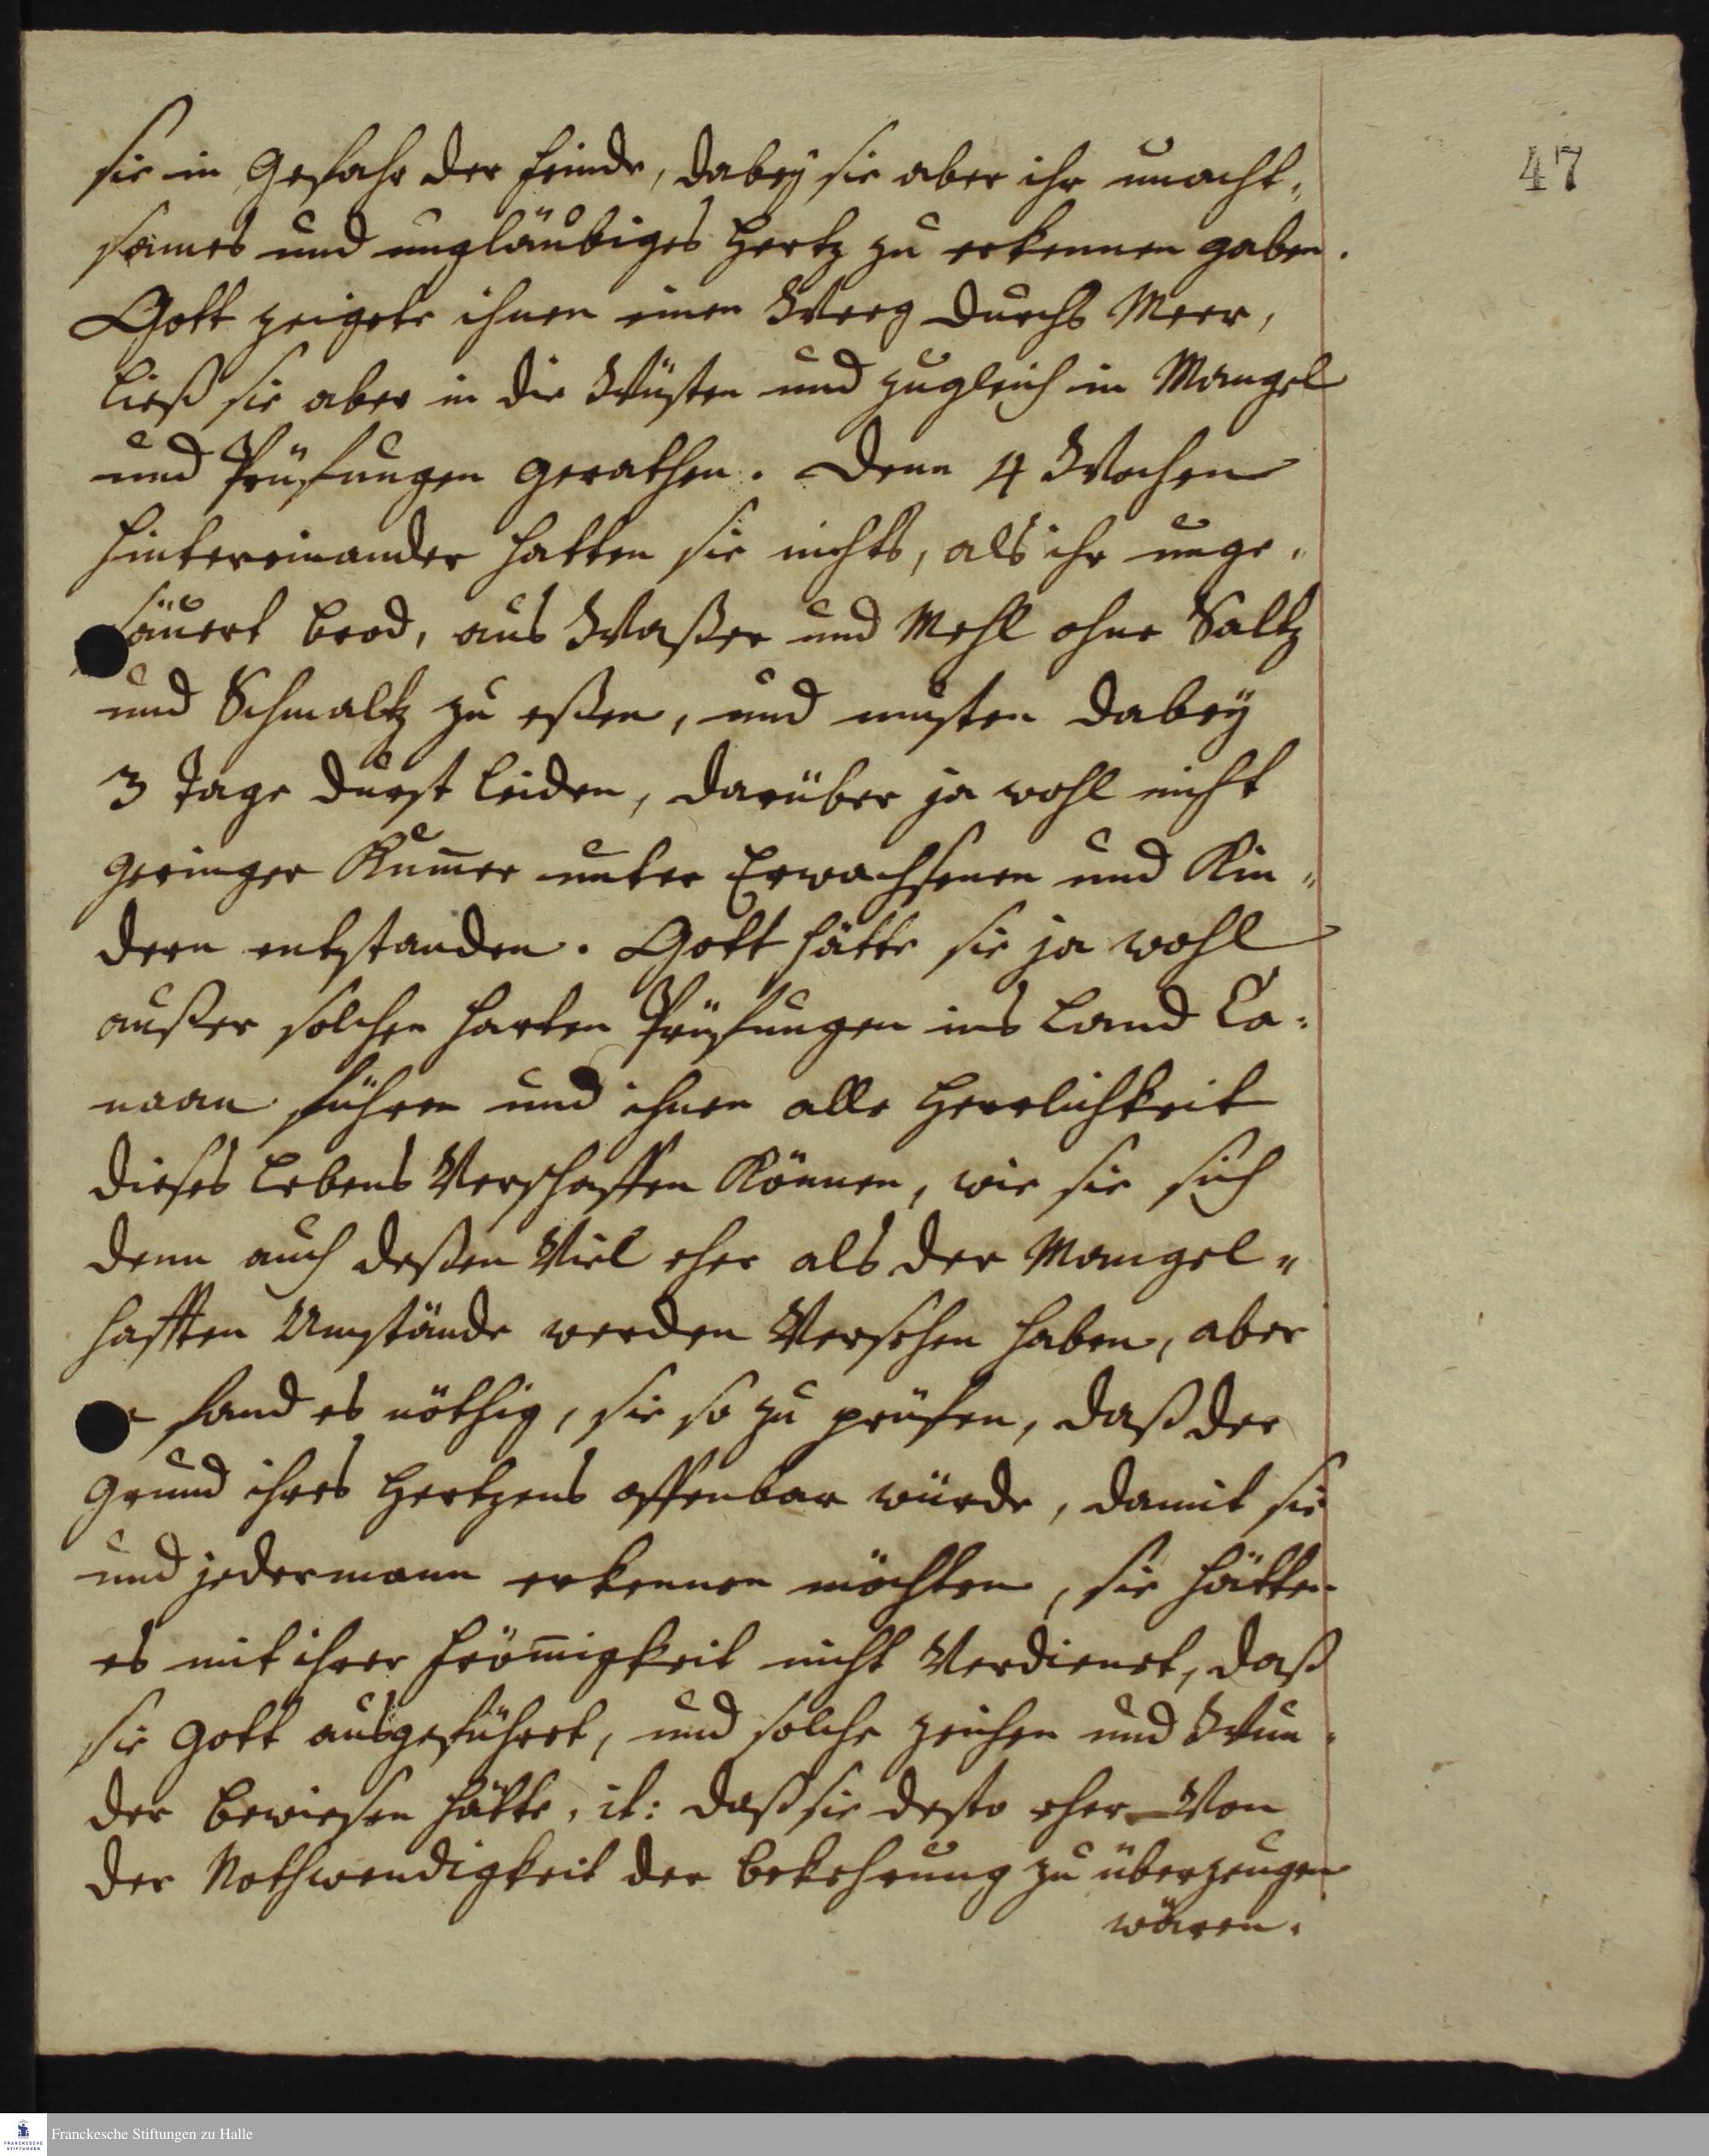 47
sie in Gefahr der Feinde, dabey sie aber ihr unacht-
sames und ungläubiges Hertz zu erkennen gaben.
Gott zeigete ihnen einen Weeg durchs Meer,
ließ sie aber in die Wüsten und zugleich in Mangel
und Prüfungen gerathen. Denn 4 Wochen
hintereinander hatten sie nichts, als ihr unge-
säuert Brod, aus Waßer und Mehl ohne Saltz
und Schmaltz zu eßen, und musten dabeÿ
3 Tage Durst leiden, darüber ja wohl nicht
geringer Kum̄er unter Erwachsenen und Kin-
dern entstanden. Gott hätte sie ja wohl
außer solchen harten Prüfungen ins Land Ca-
naan führen und ihnen alle Herrlichkeit
dieses Lebens Verschaffen Können, wie sie sich
denn auch deßen Viel eher als der Mangel-
hafften Umstände werden Versehen haben, aber
fand es nöthig, sie so zu prüfen, daß der
Grund ihres Hertzens offenbar würde, damit sie
und jedermann erkennen möchten, sie hätten
es mit ihrer From̄igkeit nicht Verdienet, daß
sie Gott ausgeführet, und solche Zeichen und Wun-
der bewiesen hätte, it: daß sie desto eher Von
der Nothwendigkeit der Bekehrung zu überzeugen
wären.
Franckesche Stiftungen zu Halle
FRANCKESCHE
STIFTUNGEN